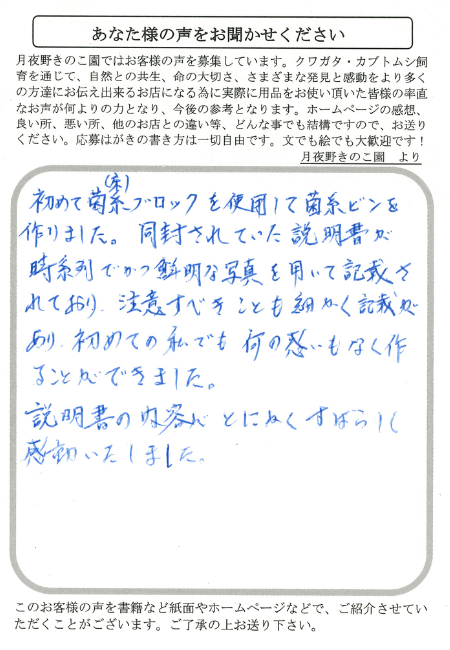 あなた様の声をお聞かせください
月夜野きのこ園ではお客様の声を募集しています。クワガタ・カブトムシ飼
育を通じて、自然との共生、命の大切さ、さまざまな発見と感動をより多く
の方達にお伝え出来るお店になる為に実際に用品をお使い頂いた皆様の率直
なお声が何よりの力となり、今後の参考となります。ホームページの感想、
良い所、悪い所、他のお店との違い等、どんな事でも結構ですので、お送り
ください。応募はがきの書き方は一切自由です。文でも絵でも大歓迎です！
月夜野きのこ園　より
(糸)
初めて菌糸ブロックを使用して菌糸ビンを
作りました。同封されていた説明書が
時系列でかつ鮮明な写真を用いて記載さ
れており、注意すべきことも細かく記載が
あり、初めての私でも何の惑いもなく作
ることができました。
説明書の内容がとにかくすばらしく
感動いたしました。
このお客様の声を書籍など紙面やホームページなどで、ご紹介させてい
ただくことがございます。ご了承の上お送り下さい。